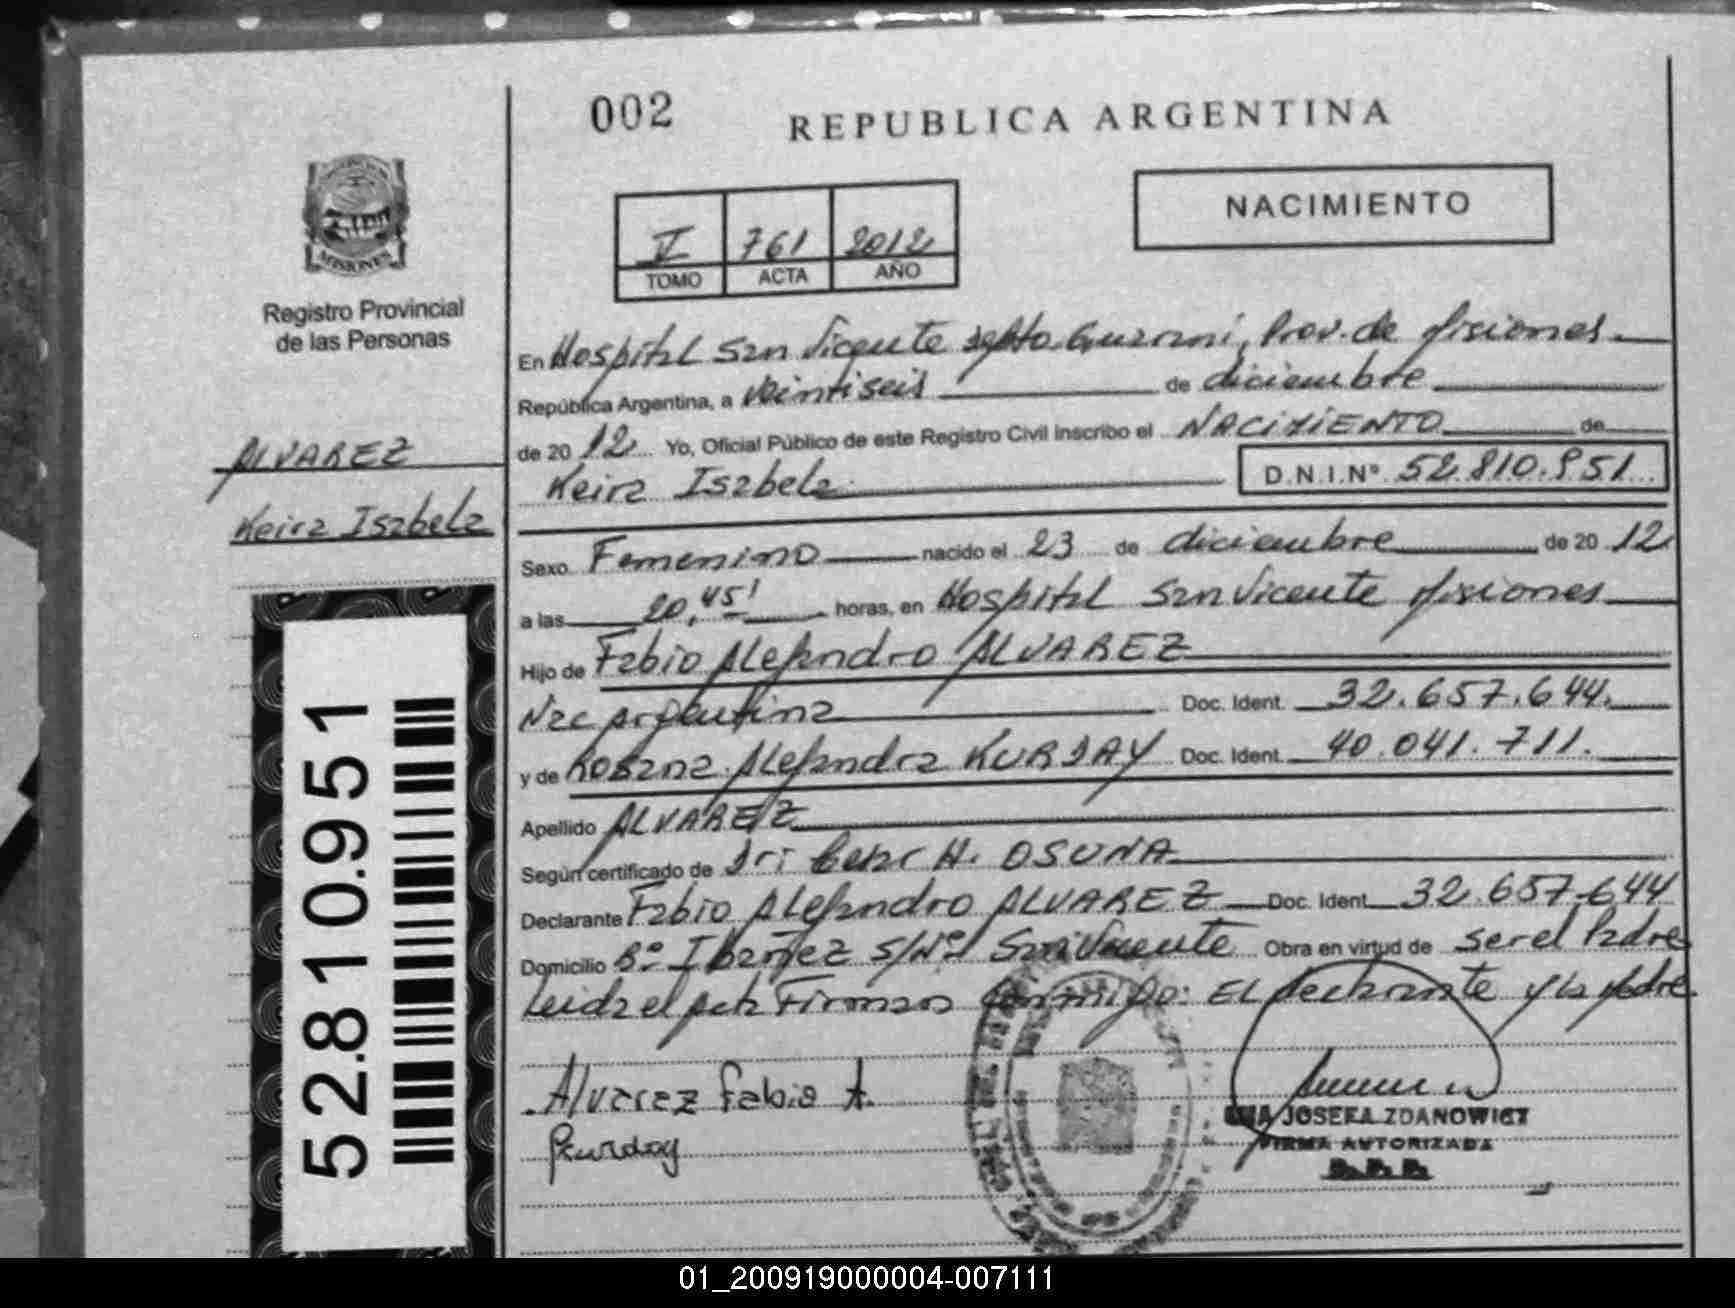 002
REPUBLICA ARGENTINA
NACIMIENTO
V 761 2012
TOMO ACTA AÑO
MISIONES
Registro Provincial
de las Personas
ALVAREZ
Keira Isabela
52.810.951
En Hospital San Vicente Depto Guarani, Prov. de Misiones
República Argentina, a veintiseis de diciembre
de 2012 Yo, Oficial Público de este Registro Civil inscribo el NACIMIENTO de
Keira Isabela D.N.I.Nº 52.810.951
Sexo Femenino nacido el 23 de diciembre de 2012
a las 20,45' horas, en Hospital San Vicente Misiones
Hijo de Fabio Alejandro ALVAREZ
Nac Argentina Doc. Ident. 32.657.644.
y de Rosana Alejandra KURDAY Doc. Ident. 40.041.711.
Apellido ALVAREZ
Según certificado de Dri Cesar H. OSUNA
Declarante Fabio Alejandro ALVAREZ Doc. Ident. 32.657.644
Domicilio Bº Ibañez S/Nº San Vicente Obra en virtud de ser el Padre
Leida el acta Firman Conmigo: El declarante y la Madre
Alvarez Fabio A.
Kurday
JOSEFA ZDANOWICZ
FIRMA AUTORIZADA
R.P.P.
01_200919000004-007111